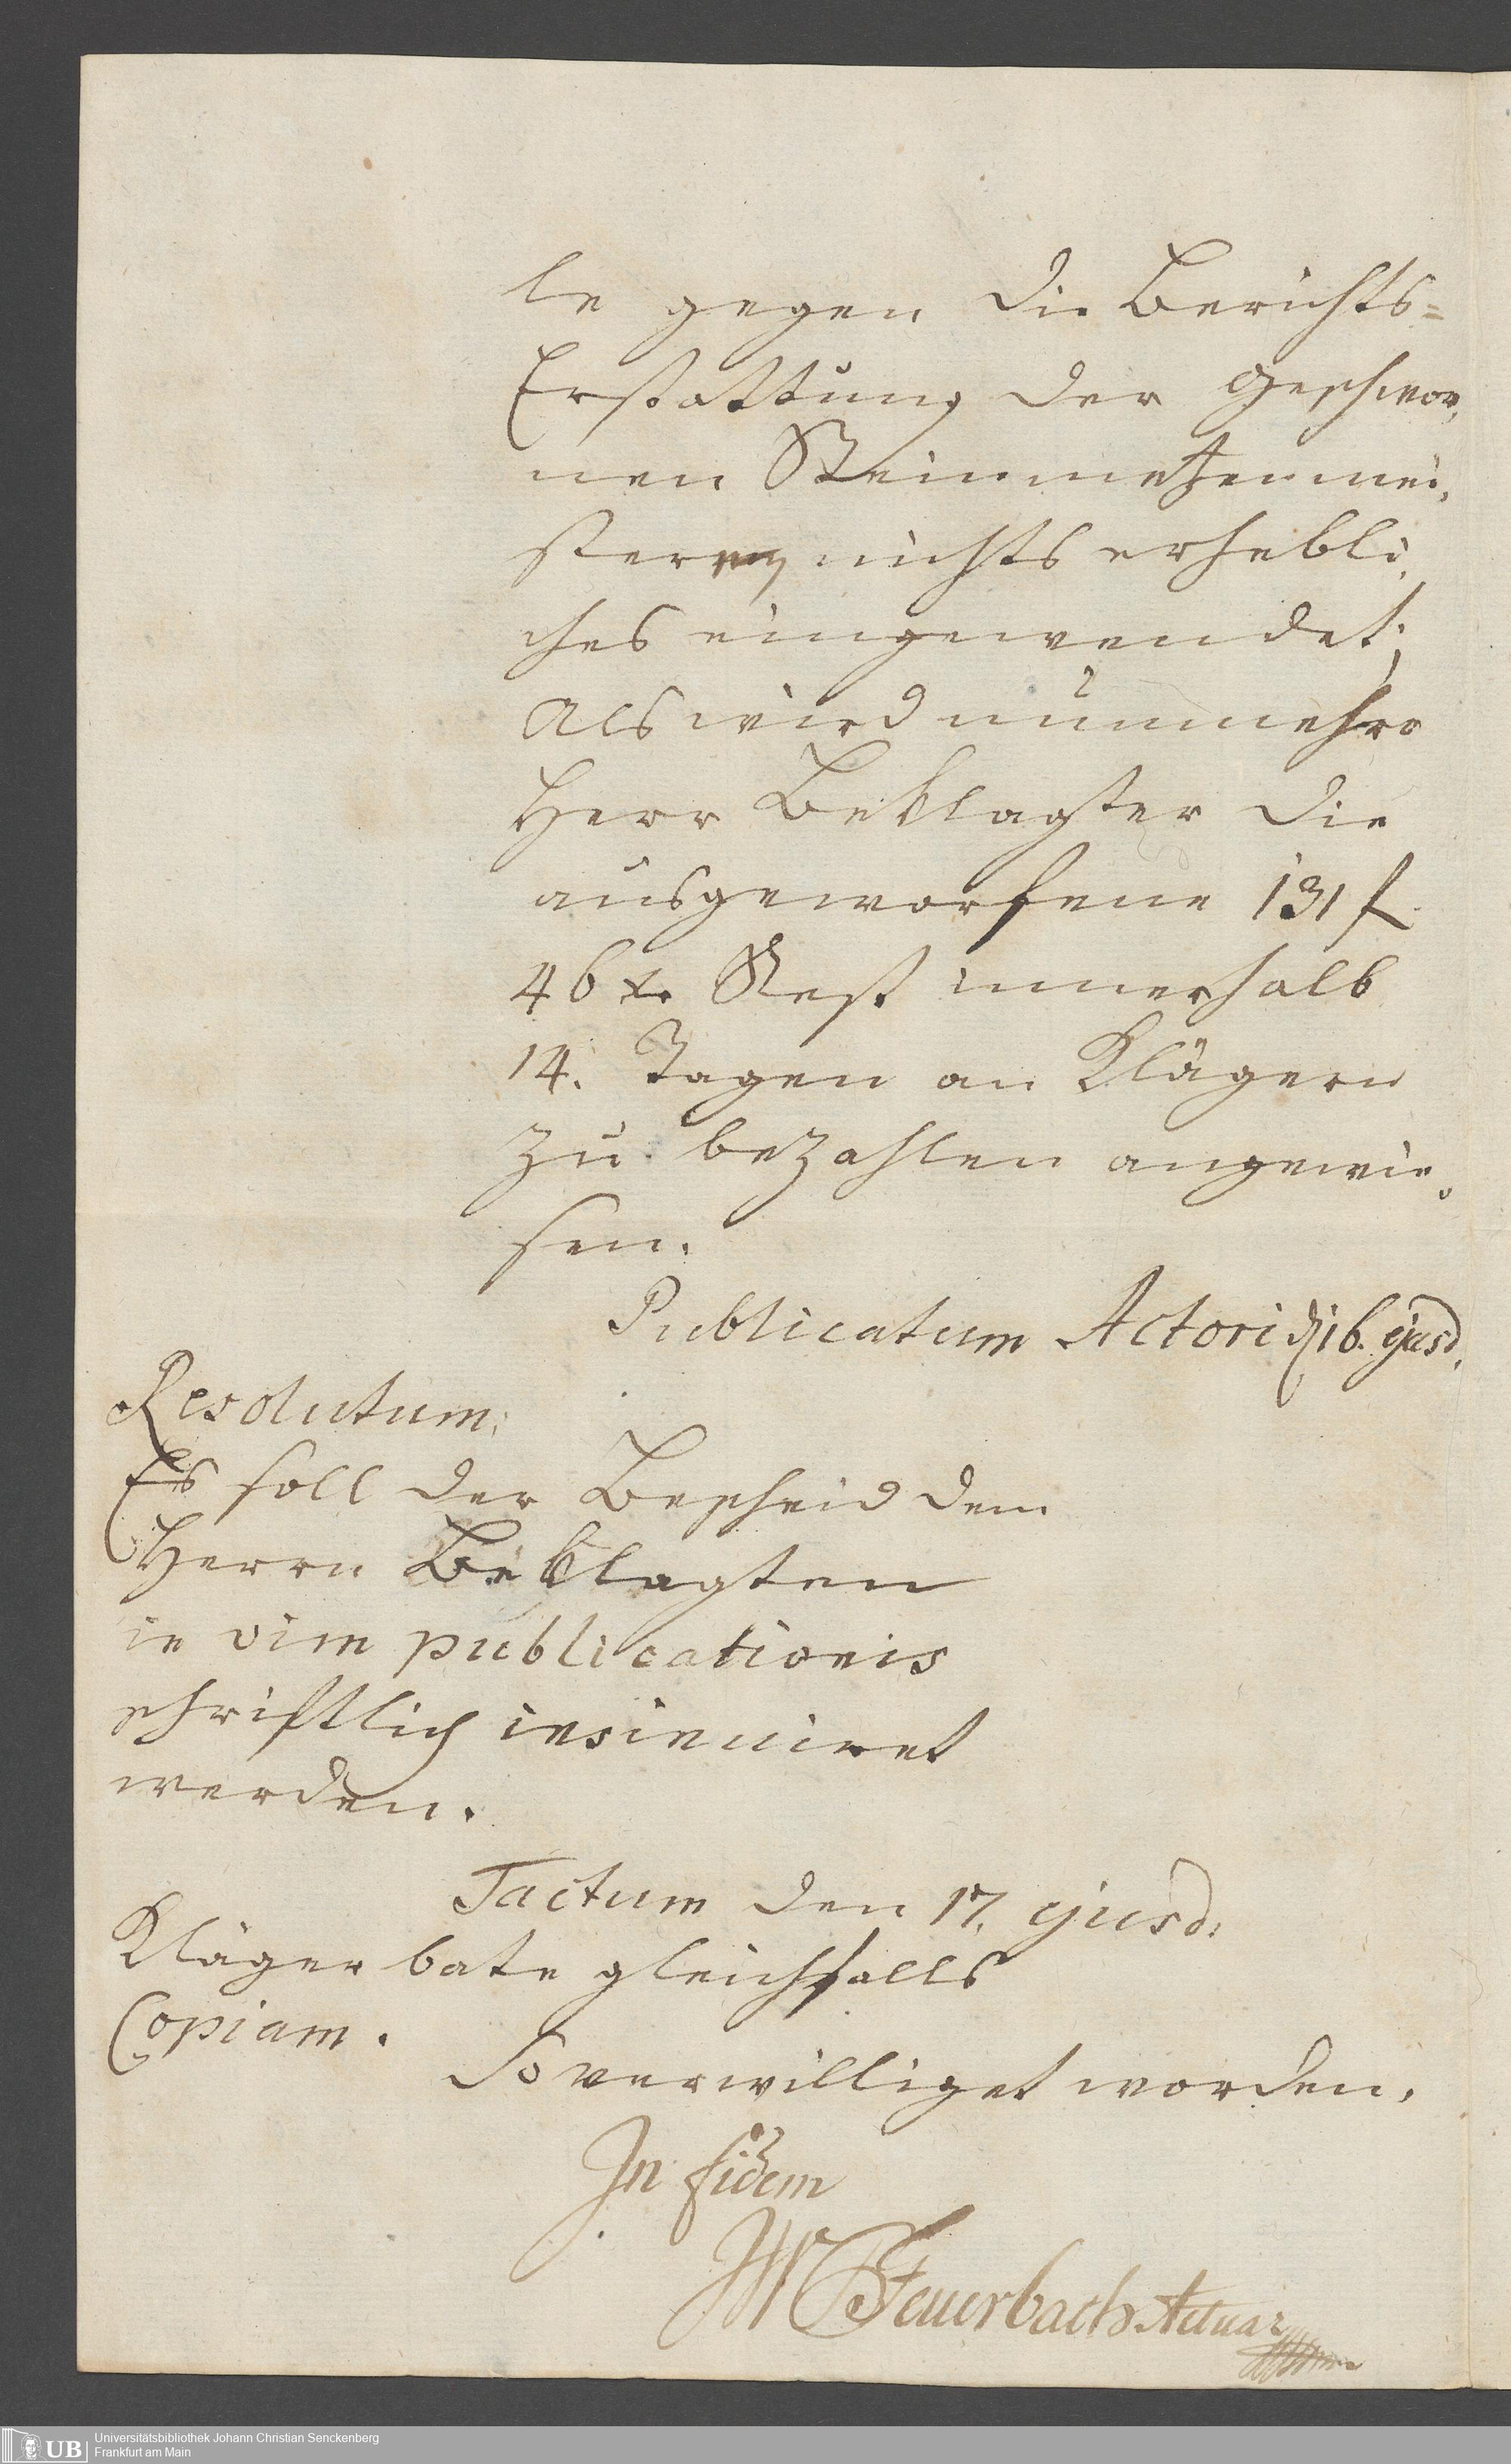 le gegen die Berichts=
Erstattung der Geschwor,
nen Steinmetzenmei,
stern nichts erhebli,
ches eingewendet;
Als wird nunmehro
Herr Beklagter die
ausgeworfene 131 f
46 xr Rest innerhalb
14. Tagen an Klägern
zu bezahlen angewie,
sen.
Publicatum Actori d 16. ejusd.
Resolutum:
Es soll der Bescheid dem
Herrn Beklagten
in vim publicationis
schriftlich insinuiret
werden.
Factum den 17. ejusd:
Kläger bate gleichfalls
Copiam.
So verwilliget worden.
In fidem
Feuerbach Actuar
UB Universitätsbibliothek Johann Christian Senckenberg
Frankfurt am Main